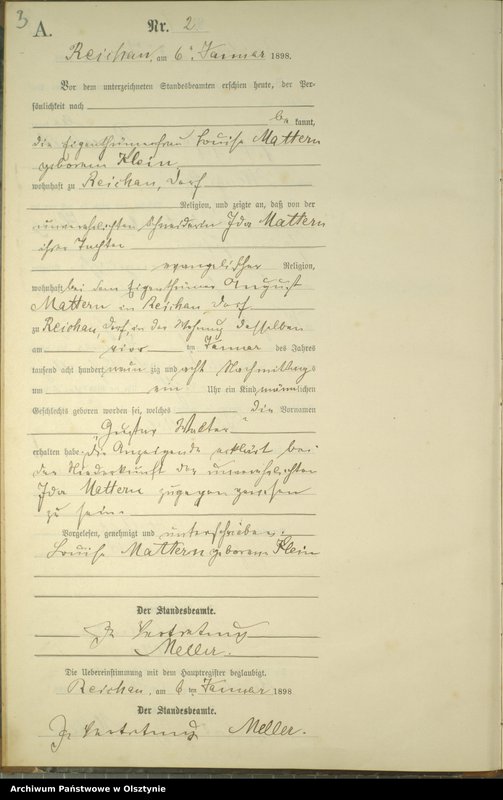 3
A.
Nr. 2
Reichau, am 6ten Januar 1898.
Vor dem unterzeichneten Standesbeamten erschien heute, der Per-
sönlichkeit nach
be kannt,
die Eigenthümerfrau Louise Mattern
geborene Klein
wohnhaft zu Reichau, Dorf
Religion, und zeigte an, daß von der
unverehelichten Schneiderin Ida Mattern
ihrer Tochter
evangelischer Religion,
wohnhaft bei dem Eigenthümer August
Mattern in Reichau Dorf
zu Reichau Dorf, in der Wohnung desselben
am vier ten Januar des Jahres
tausend acht hundert neun zig und acht Nachmittags
um ein Uhr ein Kind männlichen
Geschlechts geboren worden sei, welches die Vornamen
„Gustav Walter“
erhalten habe. Die Anzeigende erklärt bei
der Niederkunft der unverehelichten
Ida Mattern zugegen gewesen
zu sein.
Vorgelesen, genehmigt und unterschrieben.
Louise Mattern geborene Klein
Der Standesbeamte.
In Vertretung
Meller.
Die Uebereinstimmung mit dem Hauptregister beglaubigt.
Reichau, am 6 ten Januar 1898
Der Standesbeamte.
In Vertretung Meller.
Archiwum Państwowe w Olsztynie